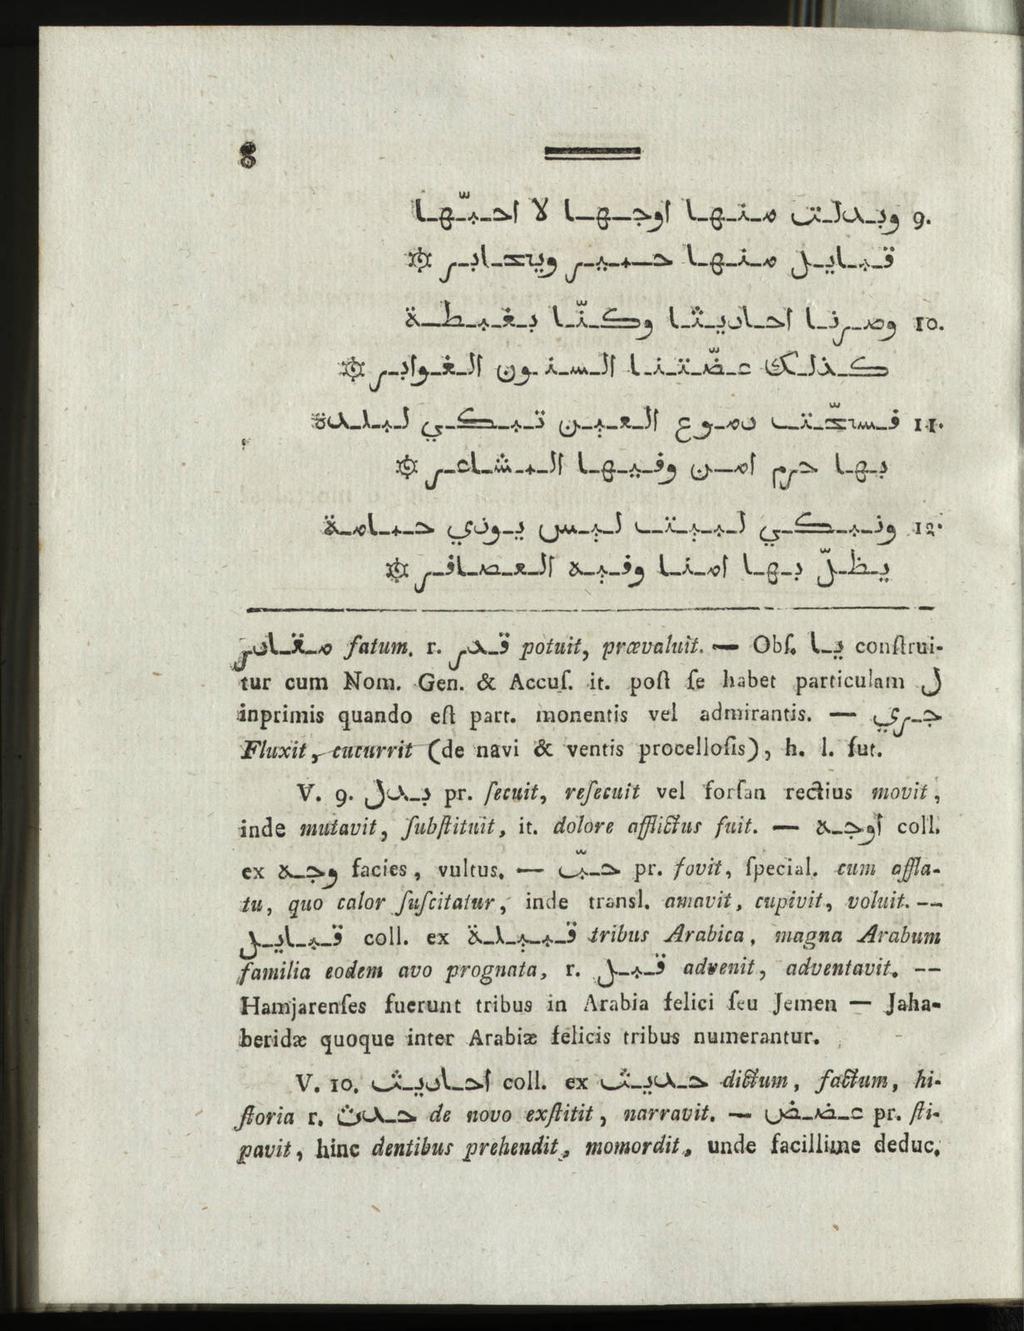 8
9. وبدلت منها اوجها لا احبها
قبايل منها حمير ويحابر
10. وصرنا احاديثا وكنا بغبطة
كذلك عضتنا السنون الغوابر
11. فسحت دموع العين تبكي لبلدة
بها حرم امن وفيها المشاعر
12. وتبكي لبيت ليس يوذي حمامة
يظل بها امنا وفيه العصافر
مقادير fatum. r. قدر potuit, prævaluit. — Obſ. يا conſtrui-
tur cum Nom. Gen. & Accuſ. it. poſt ſe habet particulam ل
inprimis quando eſt part. monentis vel admirantis. — جري
Fluxit, cucurrit (de navi & ventis procelloſis), h. l. fut.
V. 9. بدل pr. ſecuit, reſecuit vel forſan rectius movit,
inde mutavit, ſubſtituit, it. dolore afflictus fuit. — اوجه coll.
ex وجه facies, vultus. — حبّ pr. fovit, ſpecial. cum affla-
tu, quo calor ſuſcitatur, inde transl. amavit, cupivit, voluit. —
قبايل coll. ex قبيلة tribus Arabica, magna Arabum
familia eodem avo prognata, r. قبل advenit, adventavit. —
Hamjarenſes fuerunt tribus in Arabia felici ſeu Jemen — Jaha-
beridæ quoque inter Arabiæ felicis tribus numerantur.
V. 10. احاديث coll. ex حديث dictum, factum, hi-
ſtoria r. حدث de novo exſtitit, narravit. — عضض pr. ſti-
pavit, hinc dentibus prehendit, momordit, unde facillime deduc.